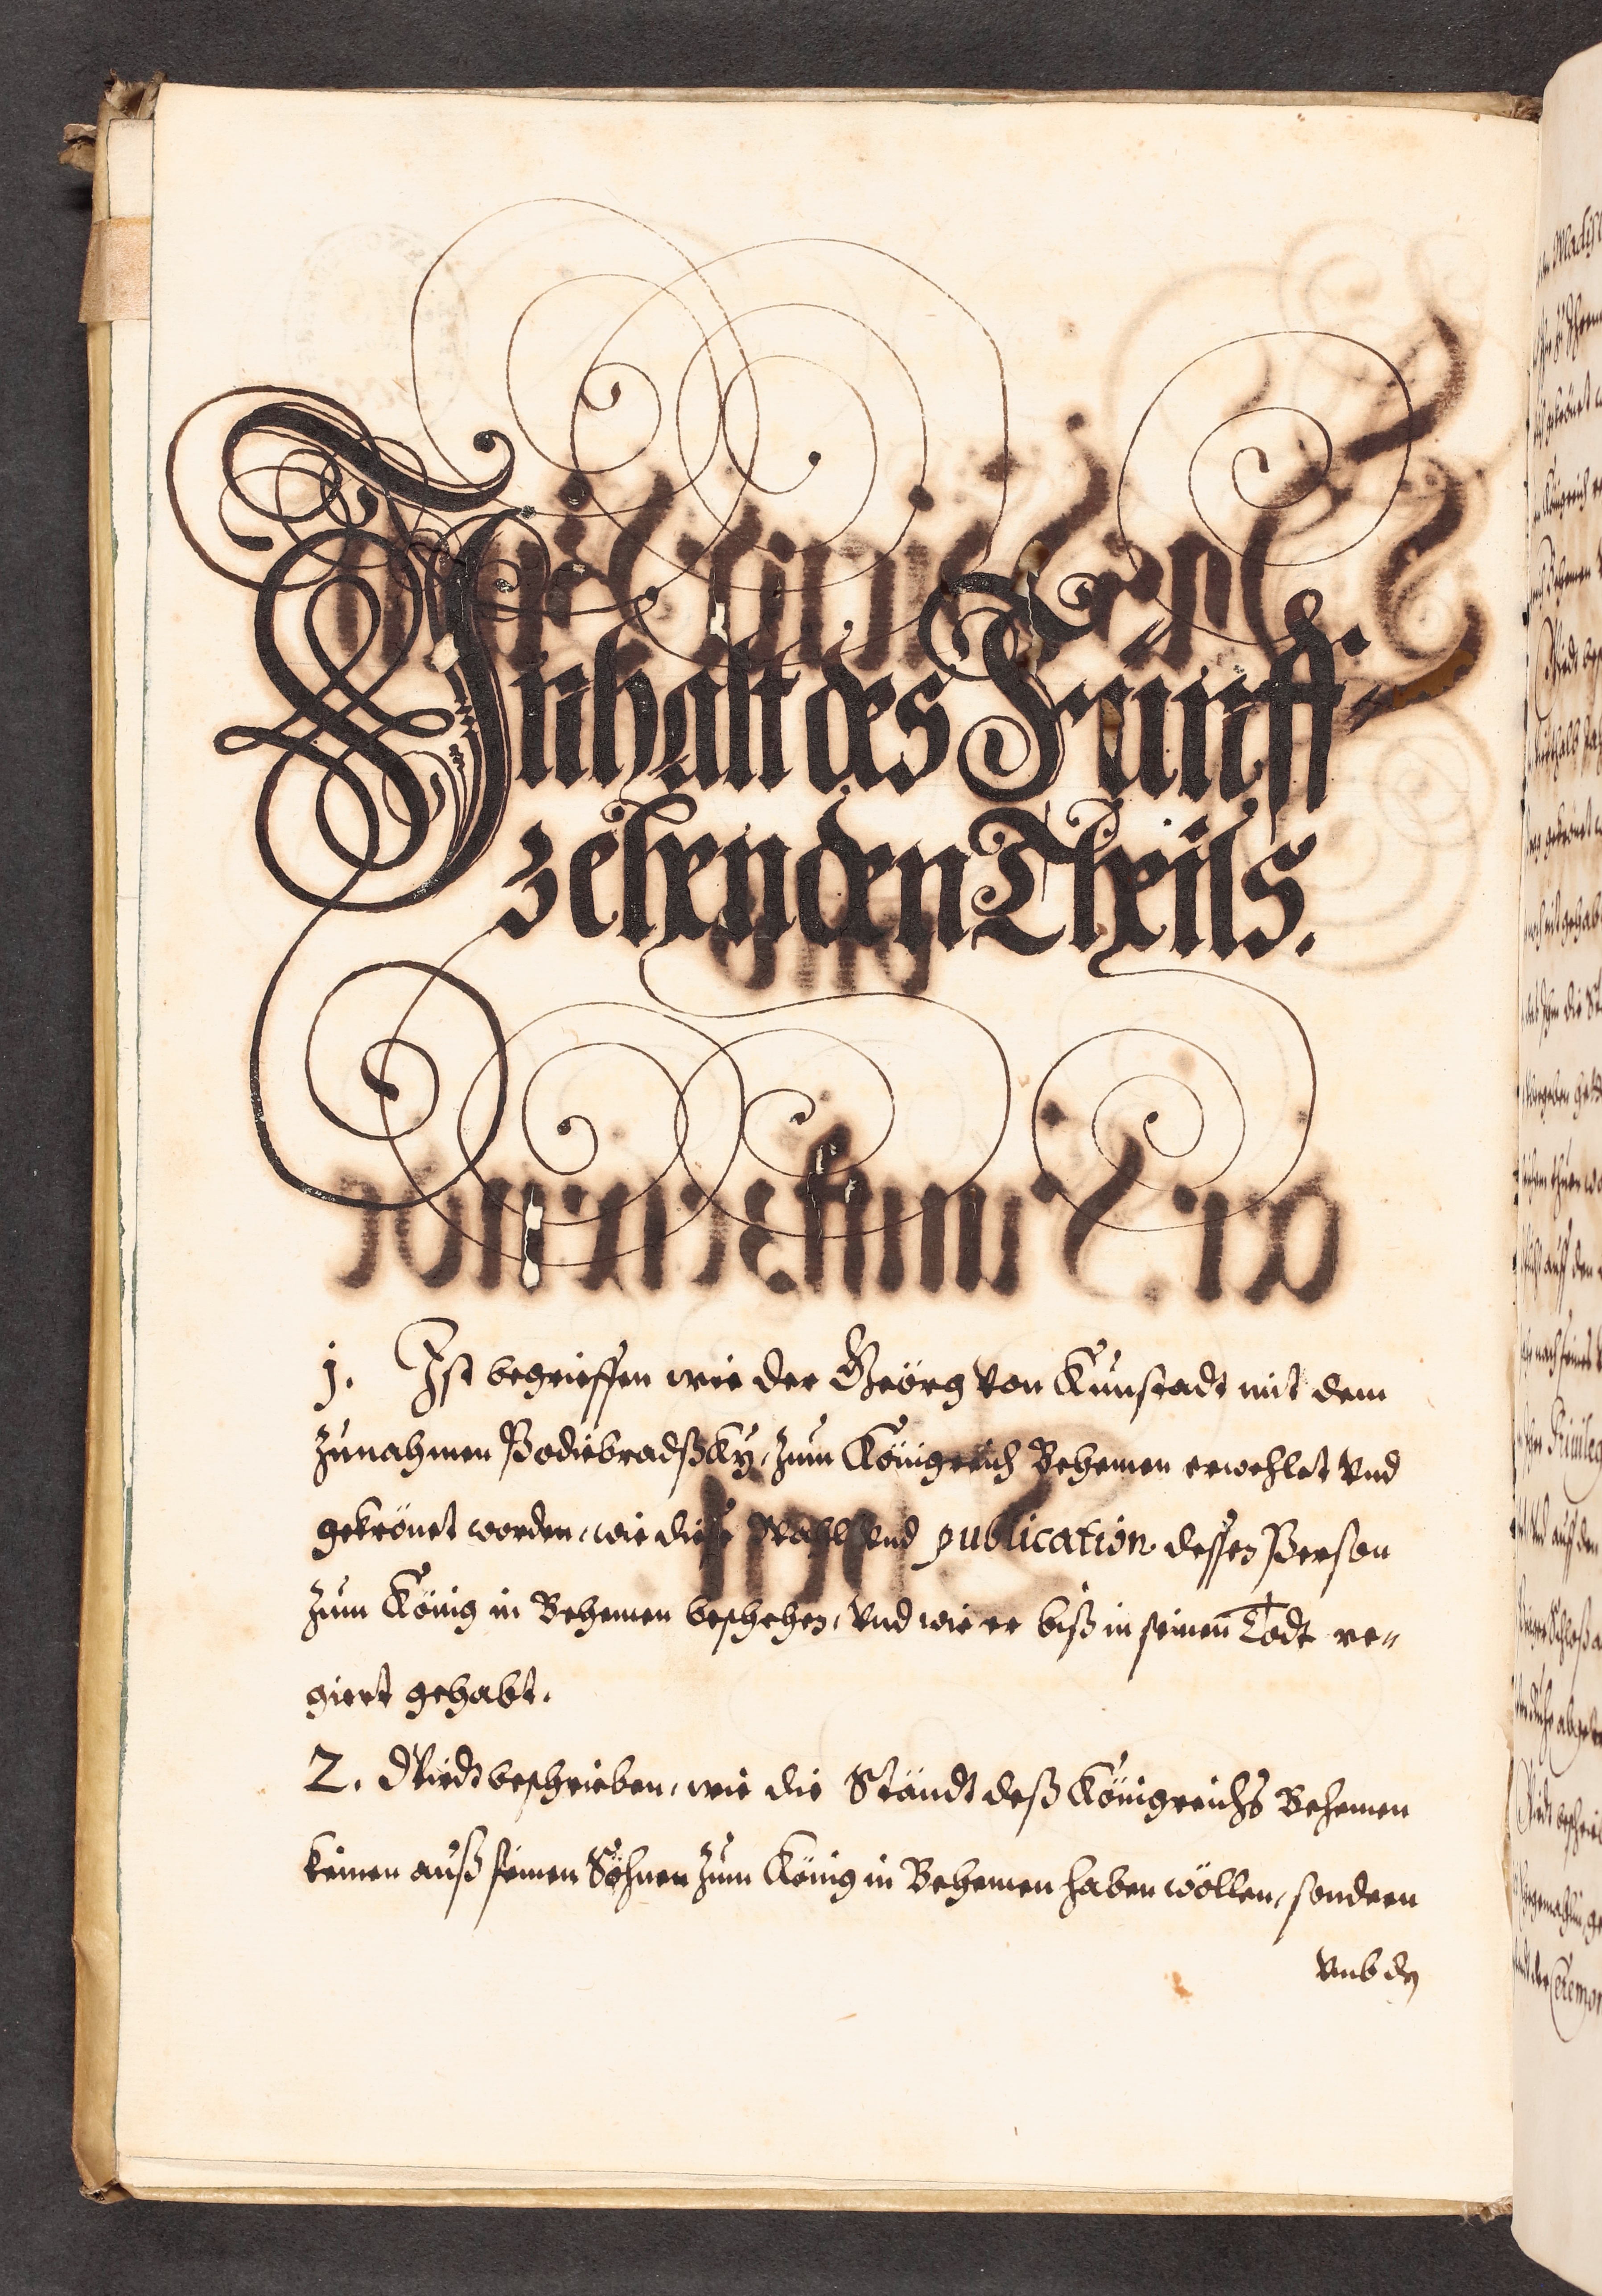 Inhalt des Fünff-
zehenden Theils.
1. Ist begrieffen wie der Geörg von Kunstadt mit dem
zunahmen Podiebradßky, zum Königreich Behemen erwehlet vnd
gekrönet worden, wie diese Wahl vnd publication dessen Person
zum König in Behemen beschehen, vnd wie er biß in seinen Todt re-
giert gehabt.
2. Wirdt beschrieben, wie die Ständt deß Königreichs Behemen
keinen auß seinen Söhnen zum König in Behemen haben wöllen, sondern
vmb dz